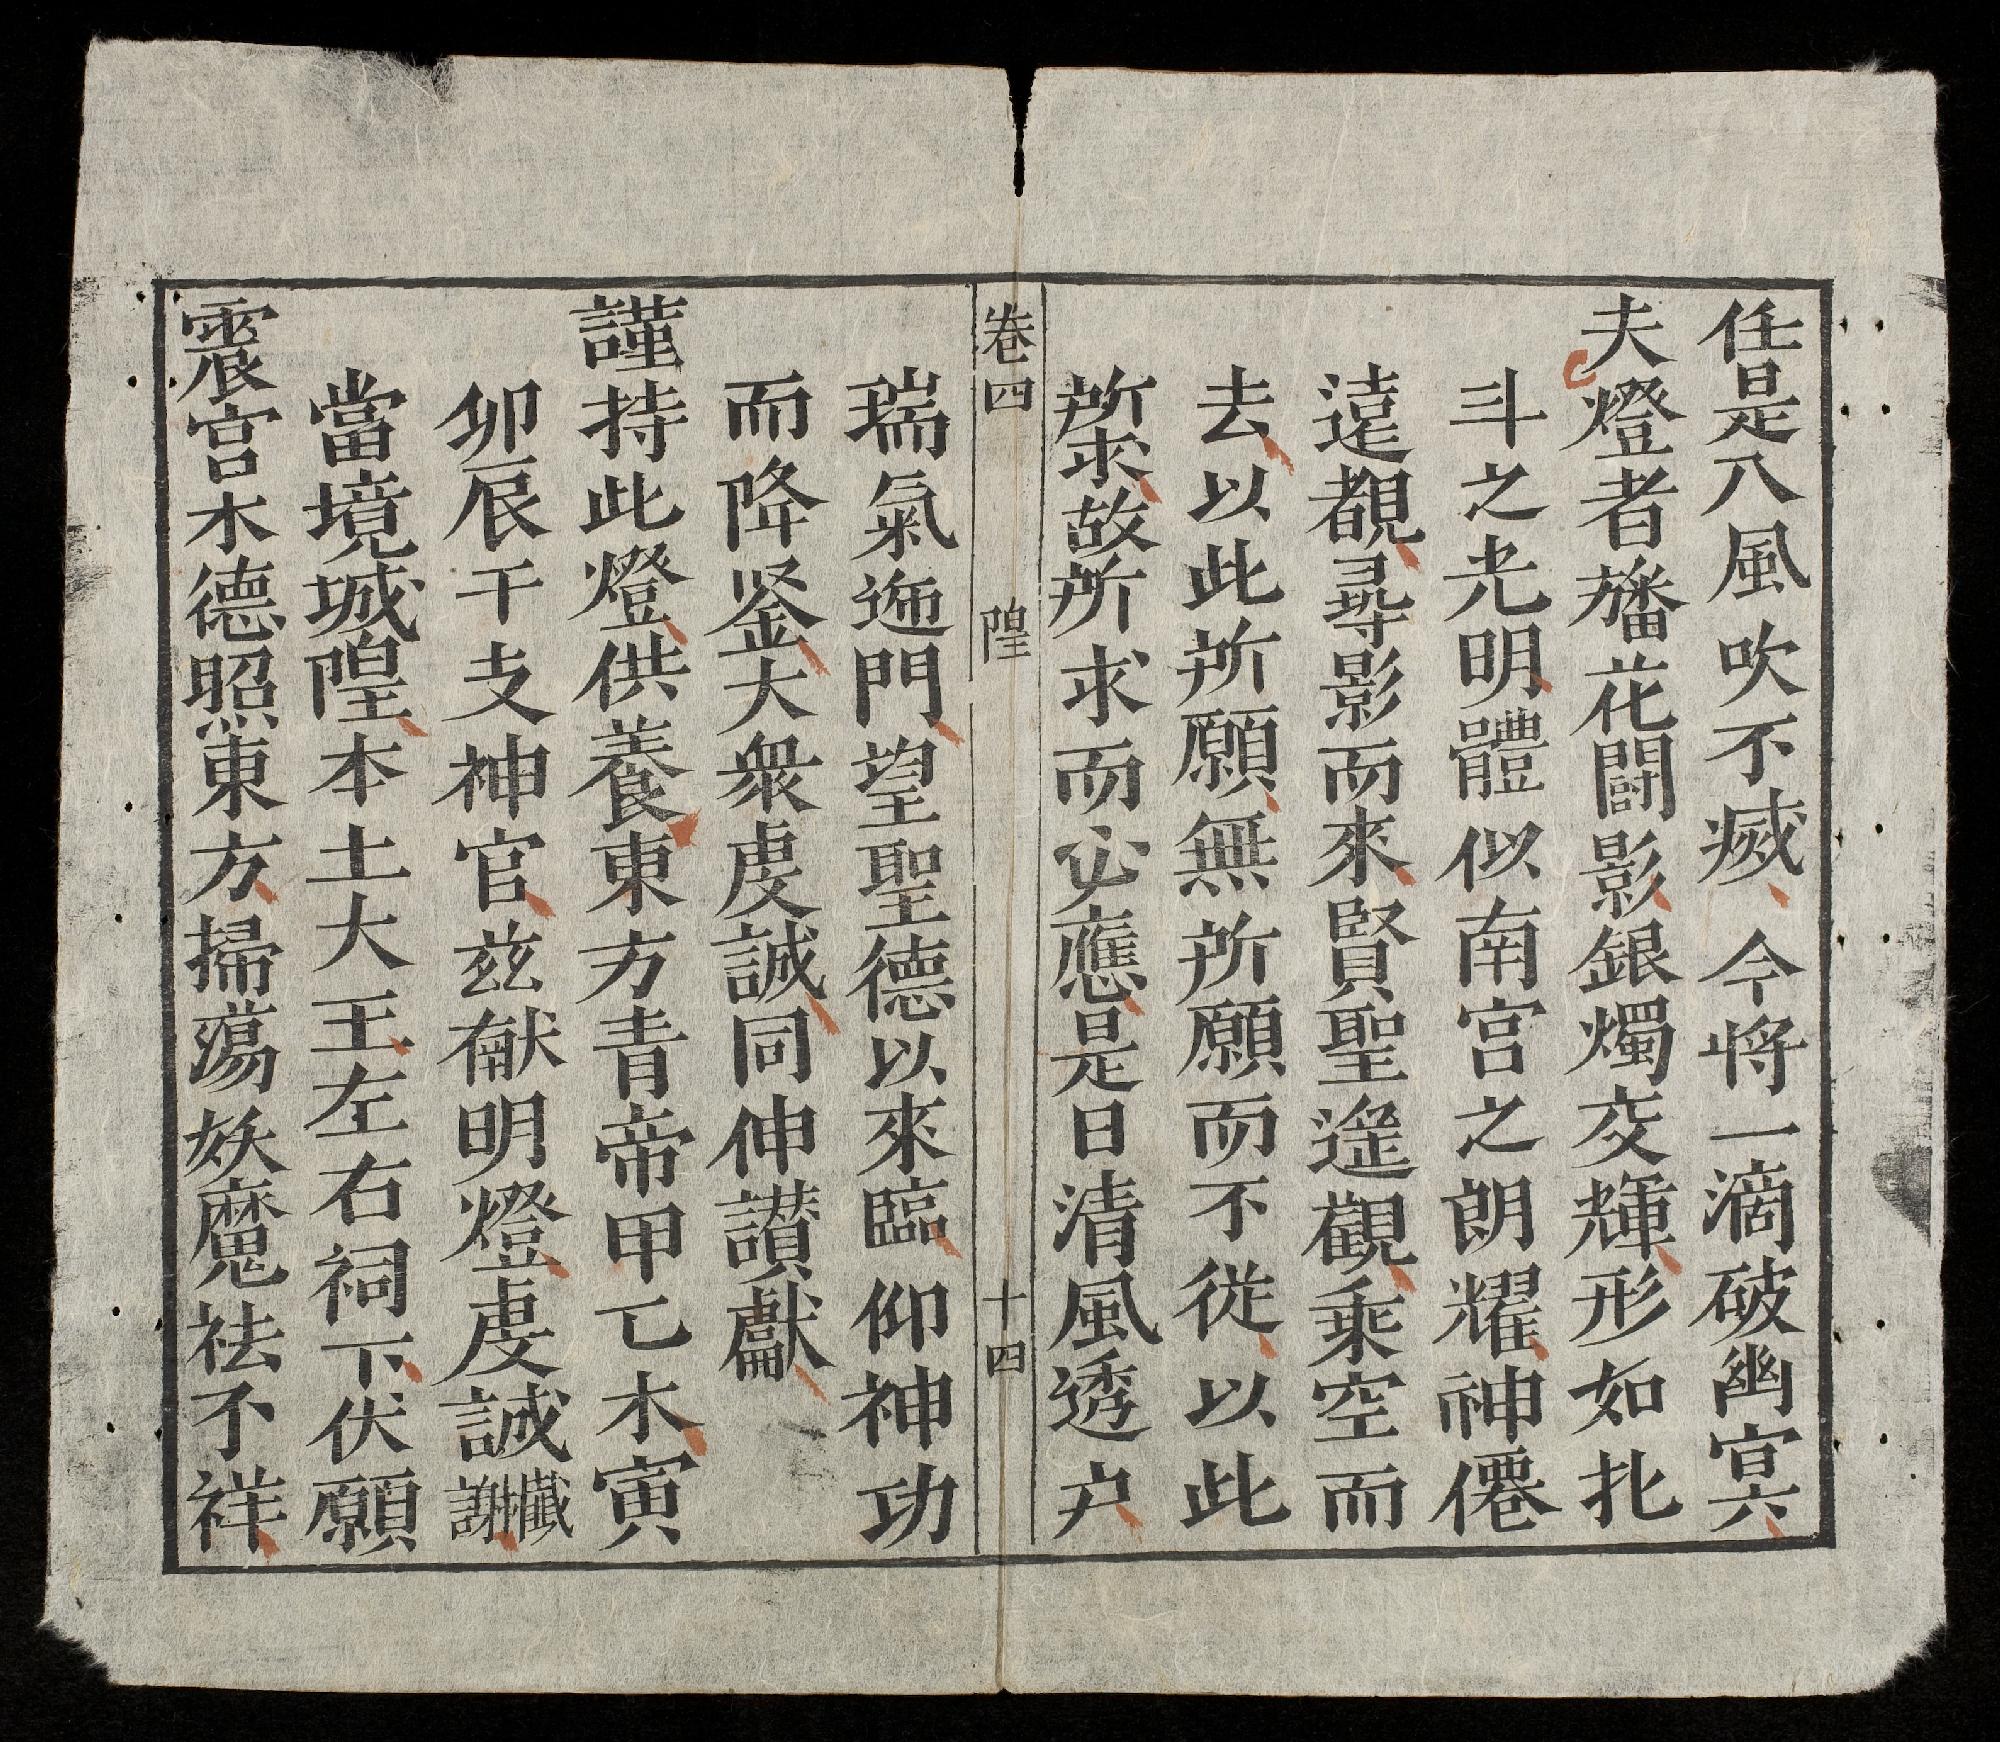 任是八風吹不滅今将一滴破幽冥
夫燈者旛花闘影銀燭交輝形如北
斗之光明體似南宮之朗耀神僊
遠覩尋影而來賢聖遥觀乘空而
去以此所願無所願而不従以此
所求故所求而必應是日清風透户
瑞氣迎門望聖德以來臨仰神功
而降鉴大衆虔誠同伸讃獻
謹持此燈供養東方青帝甲乙木寅
卯辰干支神官兹献明燈虔誠懺謝
當境城隍本土大王左右祠下伏願
震宫木德照東方掃蕩妖魔祛不祥
卷四 隍 十四